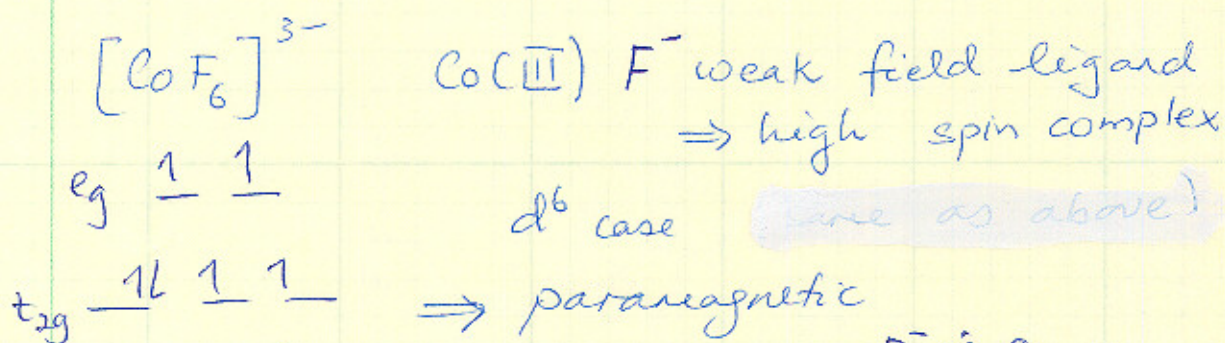 [CoF₆]³⁻ Co(III) F⁻ weak field ligand
⇒ high spin complex
eg 1 1
d⁶ case as above)
t₂g 1l 1 1 ⇒ paramagnetic